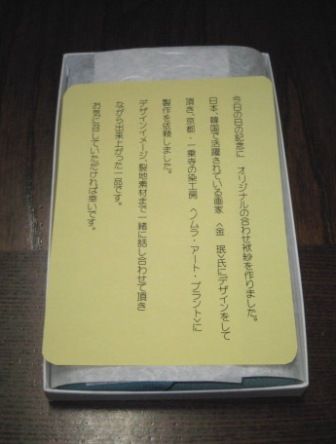 今日の日の記念に　オリジナルの合わせ袱紗を作りました。
日本、韓国で活躍されている画家　〈金　珉〉氏にデザインをして
頂き、京都・一乗寺の染工房　〈ノムラ・アート・プラント〉に
製作を依頼しました。
デザインイメージ、裂地素材まで一緒に話し合わせて頂き
ながら出来上がった一品です。
お気に召していただければ幸いです。